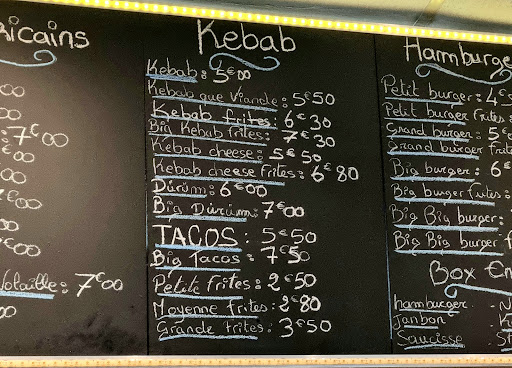 ricains
00
00
: 7€00
€00
00
00
00
€00
Volaille: 7€00
00
Kebab
Kebab: 5€00
Kebab que Viande: 5€50
Kebab frites: 6€30
Big Kebab frites: 7€30
Kebab cheese: 5€50
Kebab cheese frites: 6€80
Dürüm: 6€00
Big Dürüm: 7€00
TACOS: 5€50
Big Tacos: 7€50
Petite frites: 2€50
Moyenne frites: 2€80
Grande frites: 3€50
Hamburge
Petit burger: 4€5
Petit burger frites:
Grand burger: 5€
Grand burger frite
Big burger: 6€
Big burger frites:
Big Big burger:
Big Big burger f
Box En
hamburger
Janbon
Saucisse